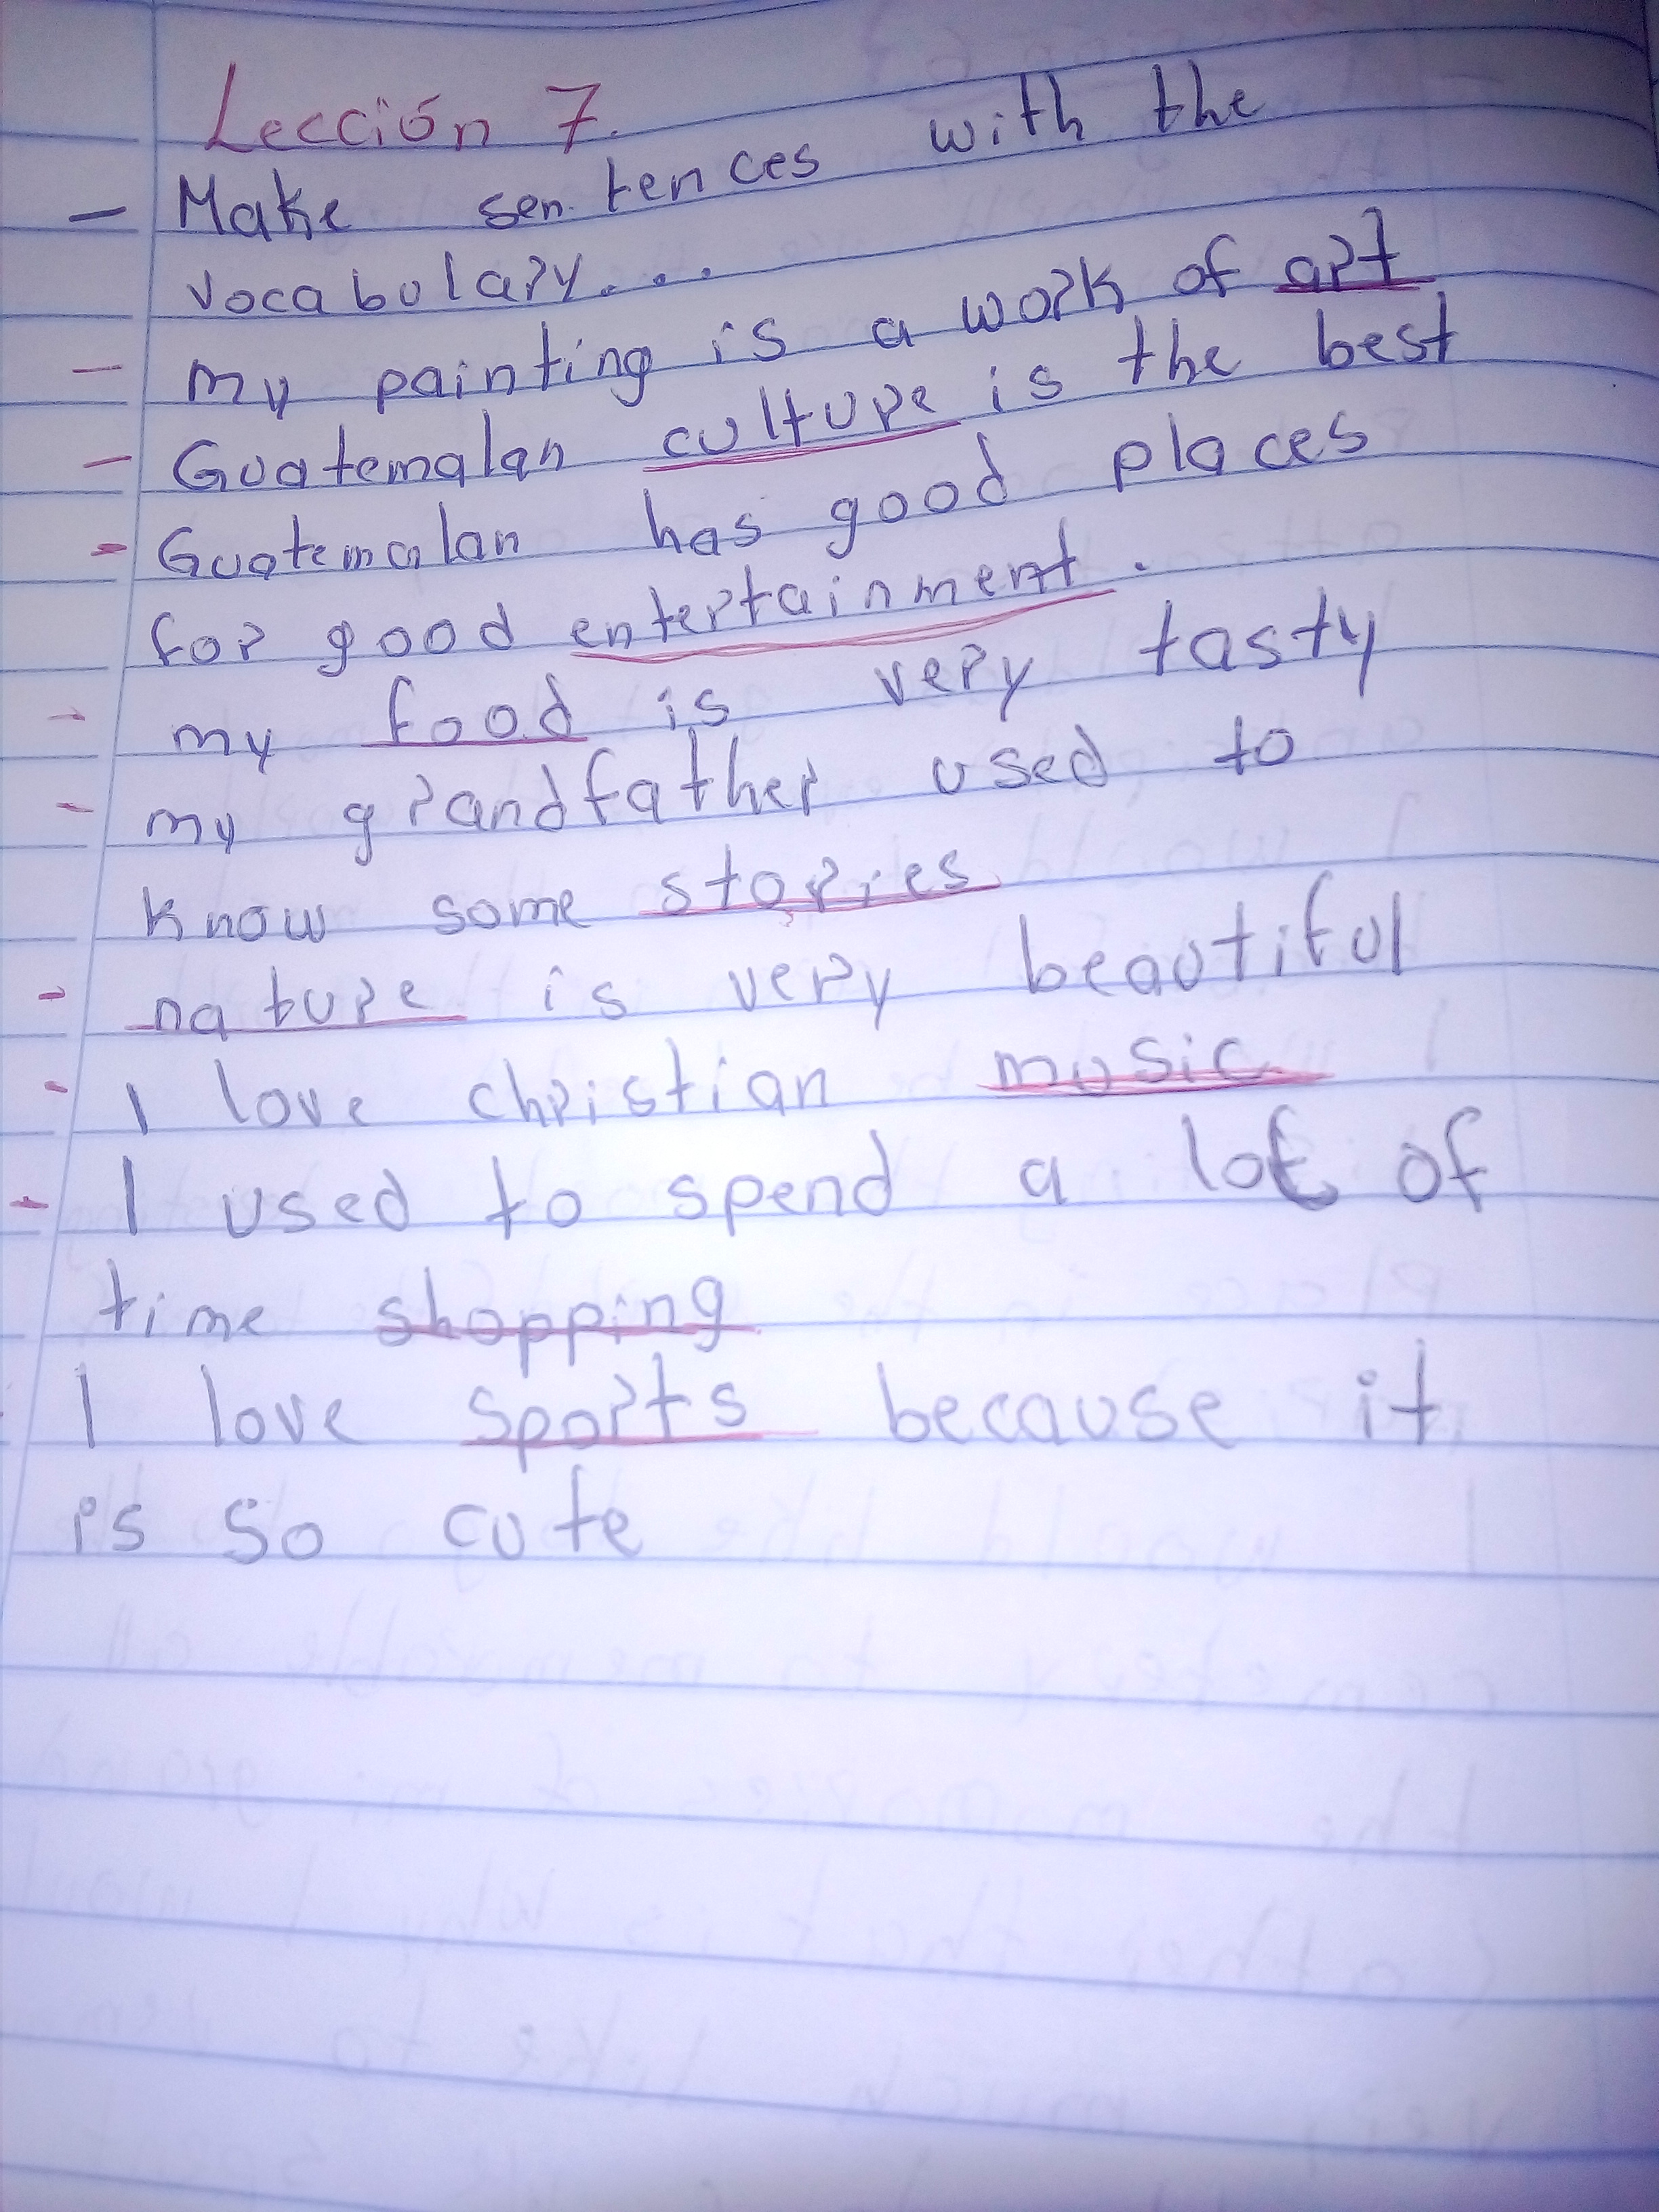 Lección 7.
- Make sentences with the
vocabulary...
- my painting is a work of art
- Guatemalan culture is the best
- Guatemalan has good places
for good entertainment.
- my food is very tasty
- my grandfather used to
know some stories
- nature is very beautiful
- I love christian music
- I used to spend a lot of
time shopping
- I love sports because it
is so cute